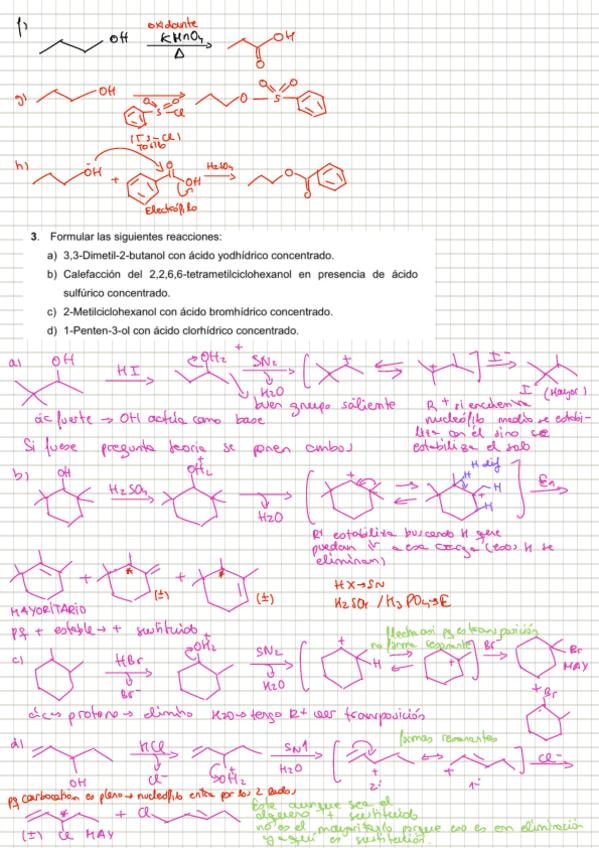 f)
oxidante
OH
KMnO4
Δ
OH
O
g)
OH
O O
S-Cl
(Ts-Cl)
O O
O S
h)
OH
+
O
OH
H2SO4
O
O
Electrófilo
3. Formular las siguientes reacciones:
a) 3,3-Dimetil-2-butanol con ácido yodhídrico concentrado.
b) Calefacción del 2,2,6,6-tetrametilciclohexanol en presencia de ácido
sulfúrico concentrado.
c) 2-Metilciclohexanol con ácido bromhídrico concentrado.
d) 1-Penten-3-ol con ácido clorhídrico concentrado.
a)
OH
HI
OH2 +
SN2
H2O
+
+
I-
I (Mayor)
buen grupo saliente
ác fuerte → OH actúa como base
R+ si encuentra
nucleófilo medio se estabi-
liza con el sino se
estabiliza el solo
Si fuese pregunta teoria se ponen ambos
b)
OH
H2SO4
OH2 +
H2O
+
H dif
H
H
H
R+ estabiliza buscando H que
puedan ir a esa carga (esos H se
eliminan)
+
+
(±)
(±)
MAYORITARIO
HX→SN
H2SO4 / H3PO4→E
pq + estable→ + sustituido
c)
HBr
Br-
OH2 +
SN2
H2O
+
H
+
Flecha asi pq es transposición
no forma resonante
Br-
Br
MAY
+ Br
ác→ protono→ elimino H2O→ tengo R+ ver transposición
d)
OH
HCl
Cl-
OH2 +
SN1
H2O
formas resonantes
+
+
2º
1º
Cl-
pq carbocation es plano→ nucleófilo entra por los 2 lados
(±) Cl MAY
+ Cl
Este aunque sea el
alqueno + sustituido
no es el mayoritario porque eso es en eliminación
y aquí es sustitución.